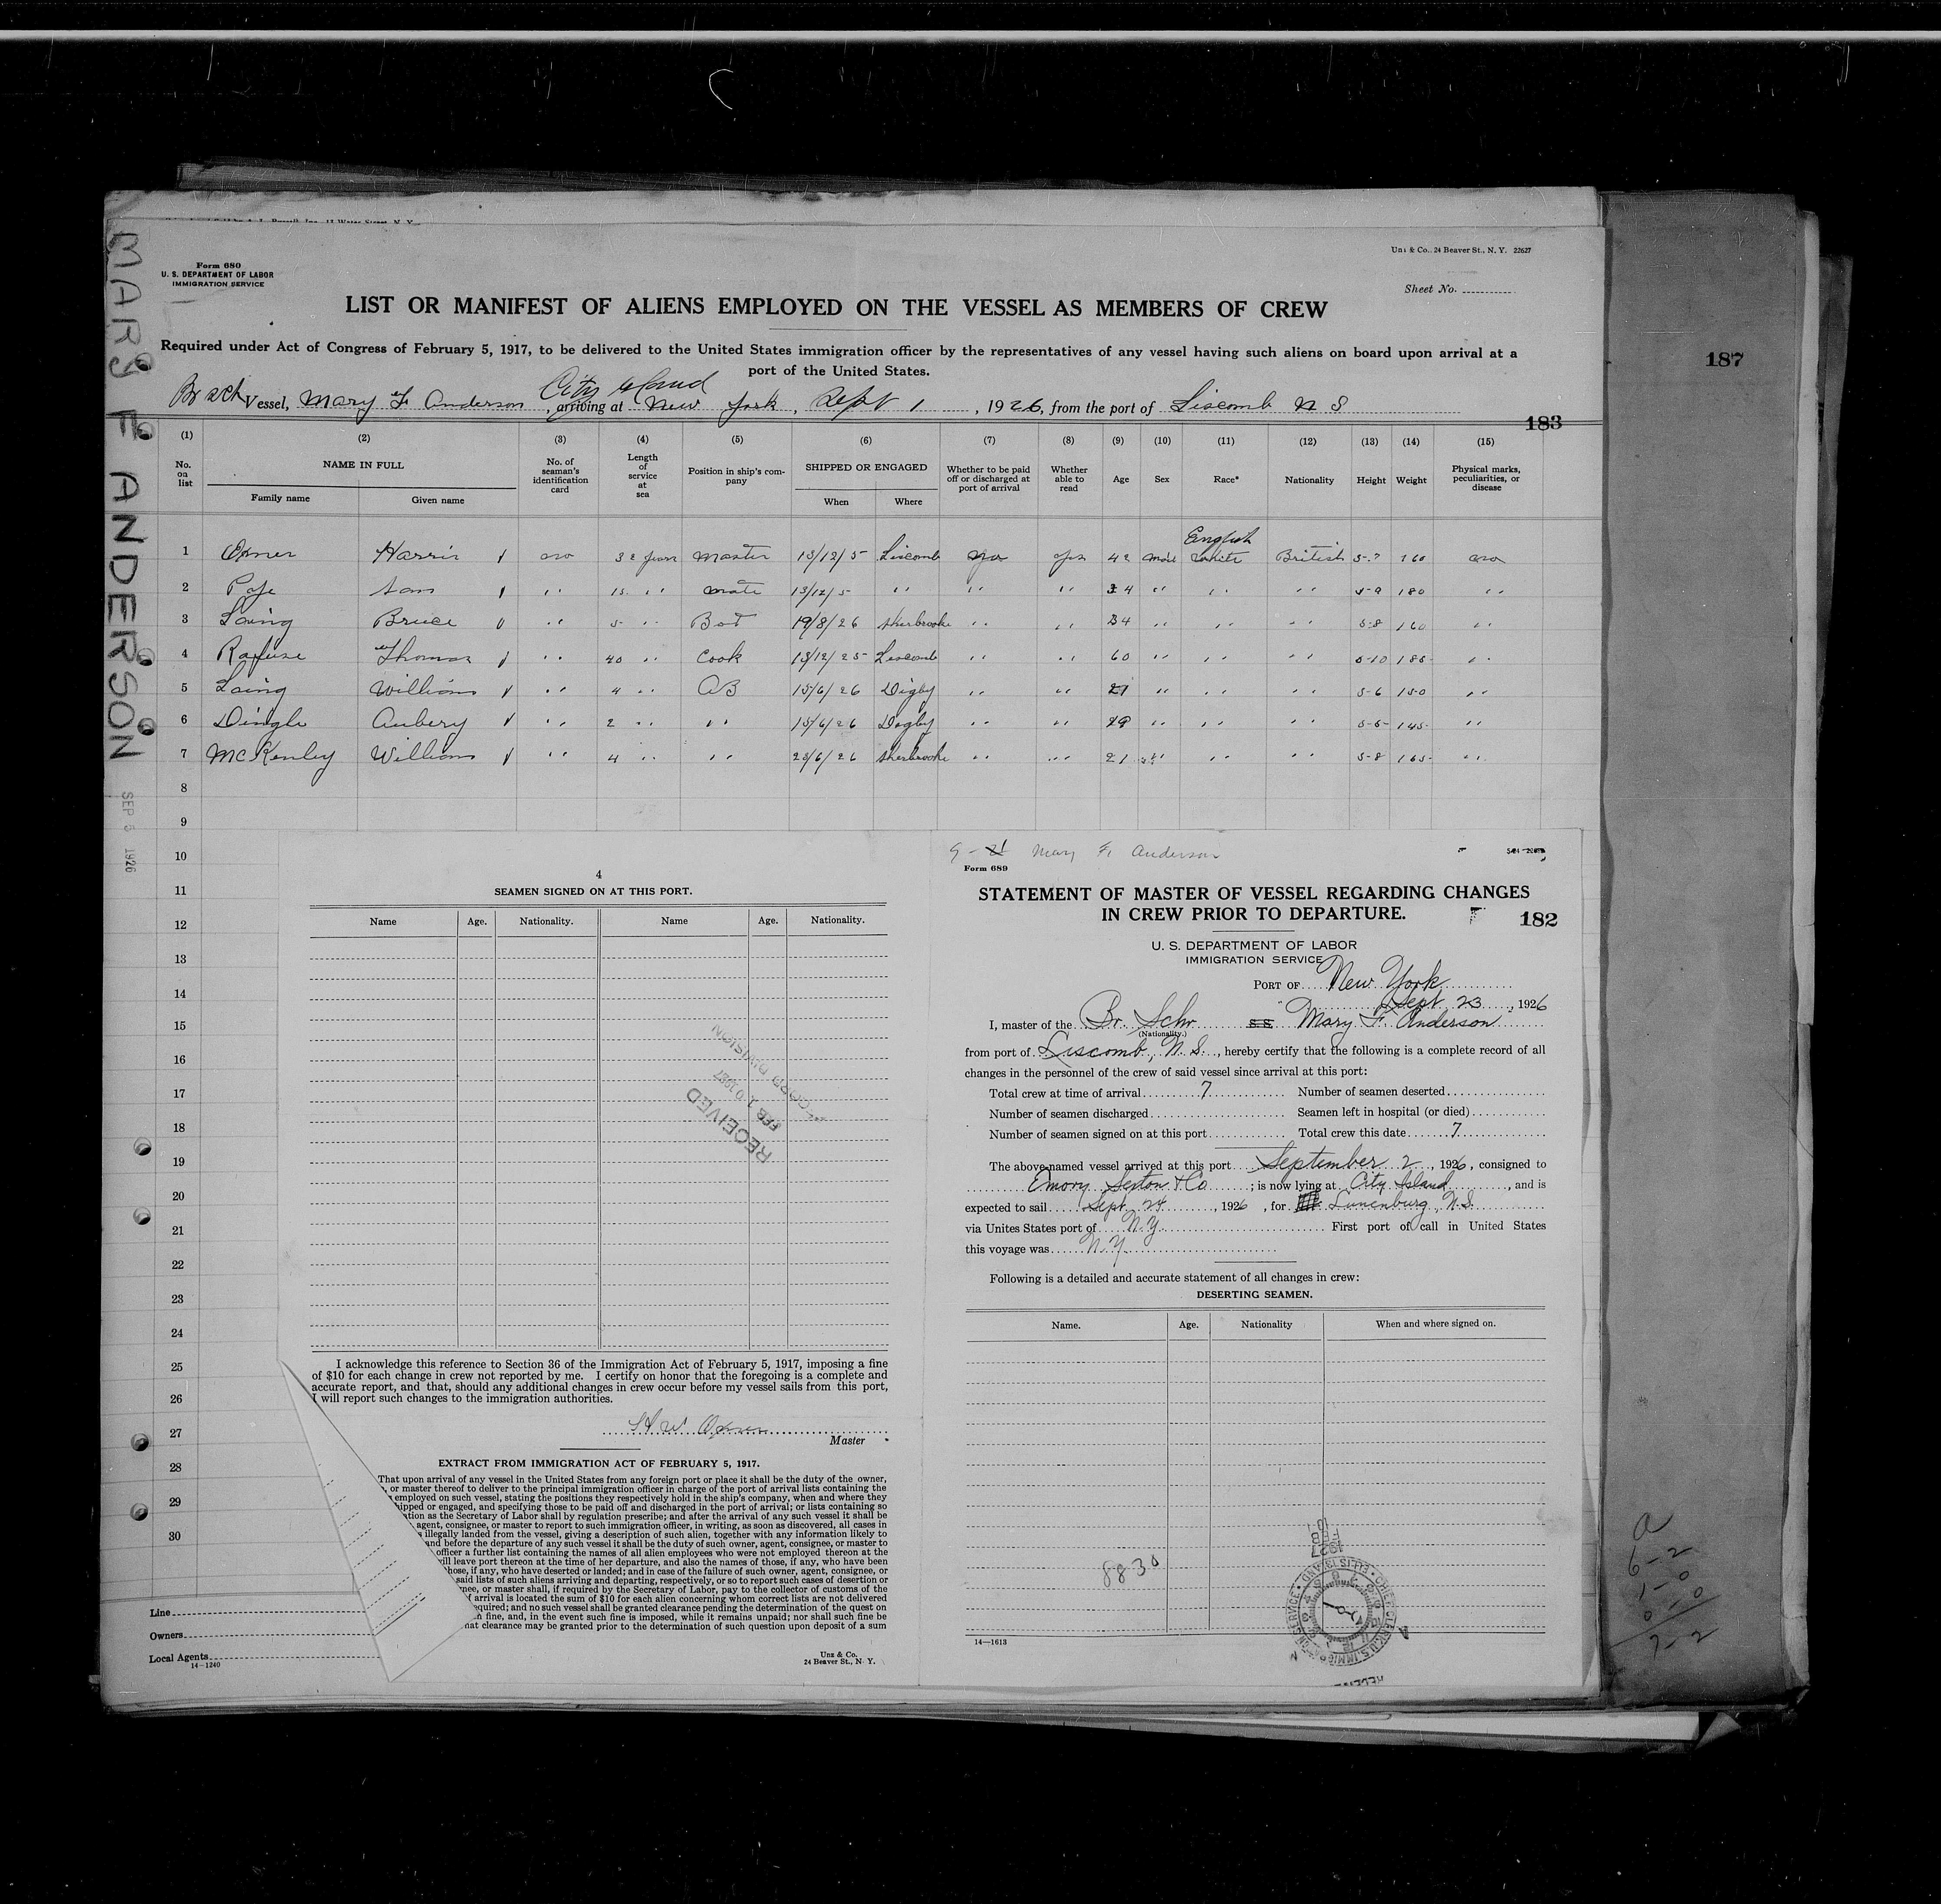 Form 680
U. S. DEPARTMENT OF LABOR
IMMIGRATION SERVICE
Unz & Co., 24 Beaver St., N. Y. 22627
Sheet No.
LIST OR MANIFEST OF ALIENS EMPLOYED ON THE VESSEL AS MEMBERS OF CREW
Required under Act of Congress of February 5, 1917, to be delivered to the United States immigration officer by the representatives of any vessel having such aliens on board upon arrival at a
port of the United States.
City Island
Br sch Vessel, Mary F Anderson, arriving at New York, Sept 1, 1926, from the port of Liscomb N S
183
187
MARY F ANDERSON
SEP 5 1926
(1) (2) (3) (4) (5) (6) (7) (8) (9) (10) (11) (12) (13) (14) (15)
No. on list NAME IN FULL Family name Given name No. of seaman's identification card Length of service at sea Position in ship's company SHIPPED OR ENGAGED When Where Whether to be paid off or discharged at port of arrival Whether able to read Age Sex Race* Nationality Height Weight Physical marks, peculiarities, or disease
English
1 Oxner Harris no 32 years Master 13/12/5 Liscomb yes yes 42 male White British 5-7 160 no
2 Pope Sam " " 15 " " mate 13/12/5 " " " " " " 34 " " " " " " 5-9 180 " "
3 Laing Bruce " " 5 " " Bot 19/8/26 Sherbrooke " " " " 34 " " " " " " 5-8 160 " "
4 Rafuse Thomas " " 40 " " Cook 13/12/25 Liscomb " " " " 60 " " " " " " 5-10 185 " "
5 Laing William " " 4 " " AB 15/6/26 Digby " " " " 21 " " " " " " 5-6 150 " "
6 Dingle Aubery " " 2 " " " " 15/6/26 Digby " " " " 19 " " " " " " 5-5 145 " "
7 McKenley William " " 4 " " " " 23/6/26 Sherbrooke " " " " 21 " " " " " " 5-8 165 " "
8
9
10
11
12
13
14
15
16
17
18
19
20
21
22
23
24
25
26
27
28
29
30
Line
Owners
Local Agents
14-1240
4
SEAMEN SIGNED ON AT THIS PORT.
Name Age. Nationality. Name Age. Nationality.
RECEIVED
FEB 10 1927
RECORD DIVISION
I acknowledge this reference to Section 36 of the Immigration Act of February 5, 1917, imposing a fine
of $10 for each change in crew not reported by me. I certify on honor that the foregoing is a complete and
accurate report, and that, should any additional changes in crew occur before my vessel sails from this port,
I will report such changes to the immigration authorities.
H W Oxner
Master
EXTRACT FROM IMMIGRATION ACT OF FEBRUARY 5, 1917.
That upon arrival of any vessel in the United States from any foreign port or place it shall be the duty of the owner,
, or master thereof to deliver to the principal immigration officer in charge of the port of arrival lists containing the
employed on such vessel, stating the positions they respectively hold in the ship's company, when and where they
shipped or engaged, and specifying those to be paid off and discharged in the port of arrival; or lists containing so
ation as the Secretary of Labor shall by regulation prescribe; and after the arrival of any such vessel it shall be
agent, consignee, or master to report to such immigration officer, in writing, as soon as discovered, all cases in
s illegally landed from the vessel, giving a description of such alien, together with any information likely to
and before the departure of any such vessel it shall be the duty of such owner, agent, consignee, or master to
officer a further list containing the names of all alien employees who were not employed thereon at the
will leave port thereon at the time of her departure, and also the names of those, if any, who have been
hose, if any, who have deserted or landed; and in case of the failure of such owner, agent, consignee, or
said lists of such aliens arriving and departing, respectively, or so to report such cases of desertion or
nee, or master shall, if required by the Secretary of Labor, pay to the collector of customs of the
f arrival is located the sum of $10 for each alien concerning whom correct lists are not delivered
equired; and no such vessel shall be granted clearance pending the determination of the quest on
h fine, and, in the event such fine is imposed, while it remains unpaid; nor shall such fine be
hat clearance may be granted prior to the determination of such question upon deposit of a sum
Unz & Co.
24 Beaver St., N. Y.
9- 21 Mary F. Anderson
Form 689
STATEMENT OF MASTER OF VESSEL REGARDING CHANGES
IN CREW PRIOR TO DEPARTURE.
182
U. S. DEPARTMENT OF LABOR
IMMIGRATION SERVICE
PORT OF New York
Sept 23, 1926
I, master of the Br. Schr. S S Mary F. Anderson
(Nationality.)
from port of Liscomb, N.S., hereby certify that the following is a complete record of all
changes in the personnel of the crew of said vessel since arrival at this port:
Total crew at time of arrival 7 Number of seamen deserted
Number of seamen discharged Seamen left in hospital (or died)
Number of seamen signed on at this port Total crew this date 7
The above-named vessel arrived at this port September 2, 1926, consigned to
Emory Sexton & Co; is now lying at City Island, and is
expected to sail Sept 24, 1926, for Lunenburg, N.S.
via Unites States port of N.Y. First port of call in United States
this voyage was N.Y.
Following is a detailed and accurate statement of all changes in crew:
DESERTING SEAMEN.
Name. Age. Nationality When and where signed on.
8830
14-1613
a
6-2
1-0
0-0
7-2